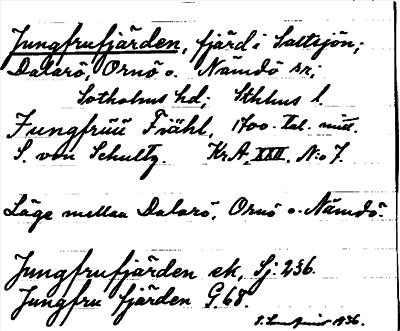 Jungfrufjärden, fjärd i Saltsjön;
Dalarö, Ornö o. Nämdö sr;
Sotholms hd; Sthlms l.
Jungfrüü Fiähl, 1700-tal. mitt.
S. von Schultz. Kr.A. XXII, N:o 7.
Läge mellan Dalarö, Ornö o. Nämdö.
Jungfrufjärden ek, Sj. 236.
Jungfru fjärden G. 68.
1936.